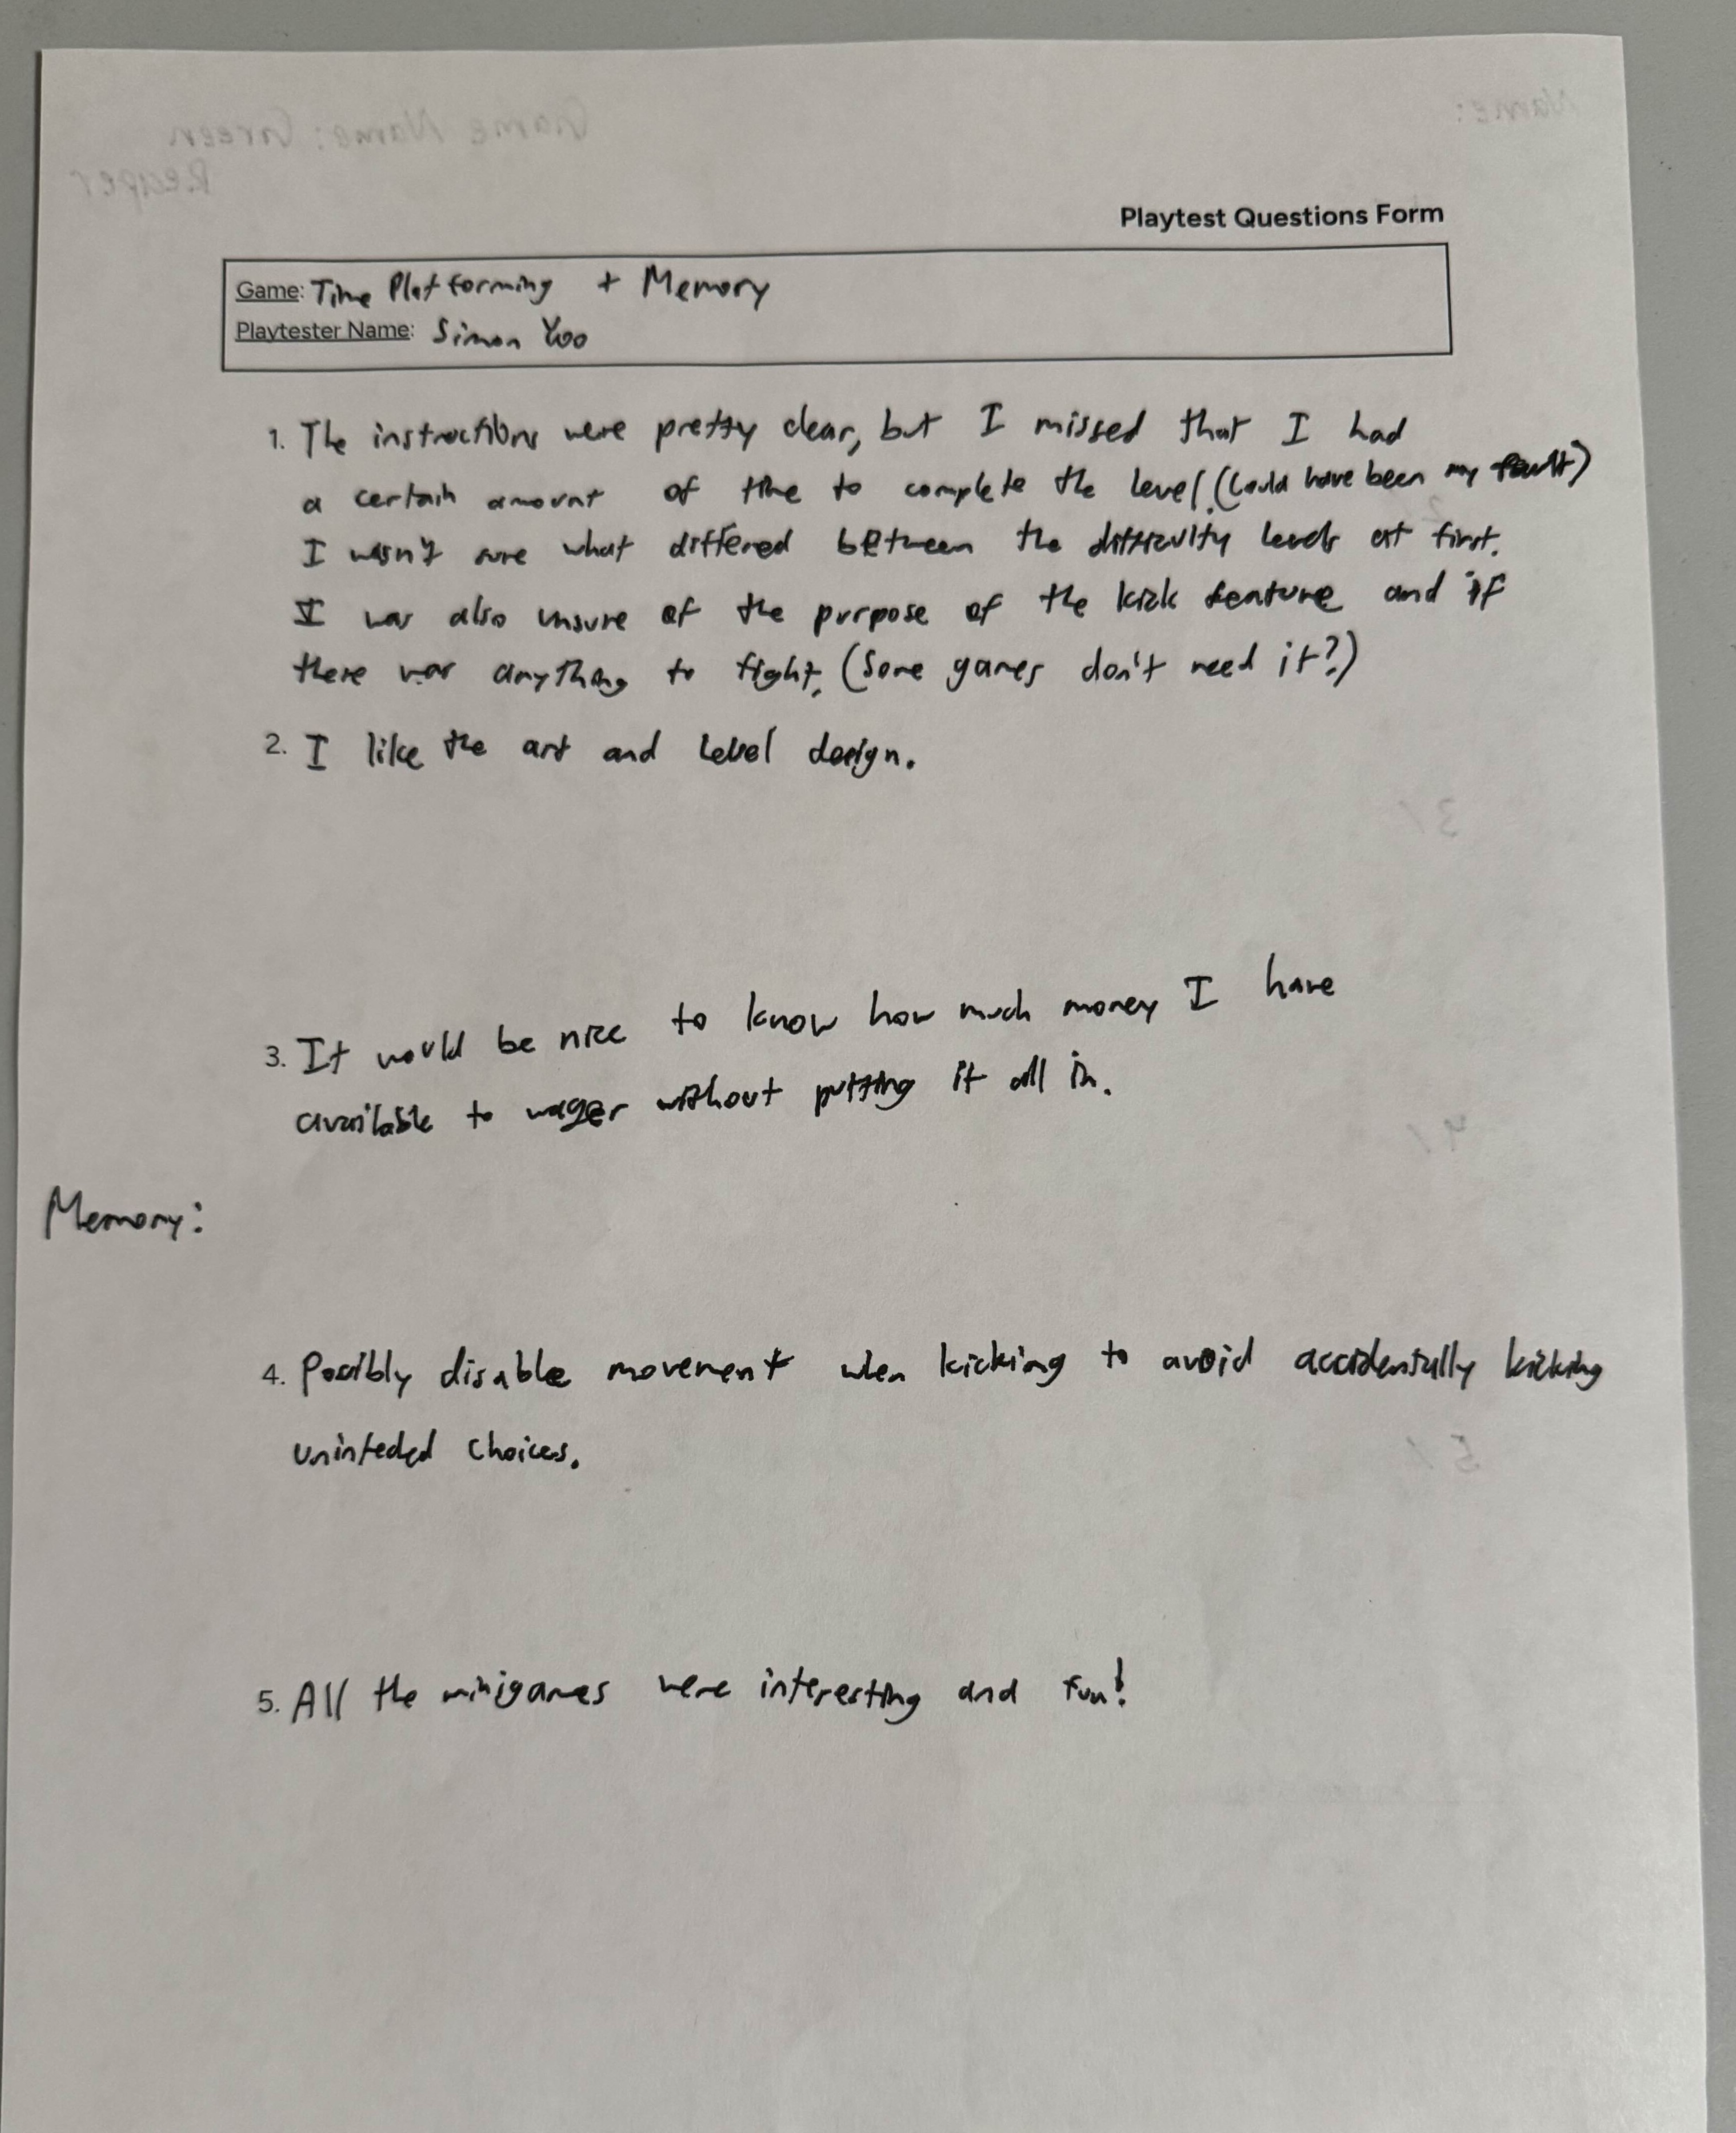 Name:
Game Name: Green
Reaper
Playtest Questions Form
Game: Time Platforming + Memory
Playtester Name: Simon Yoo
1. The instructions were pretty clear, but I missed that I had
a certain amount of time to complete the level. (Could have been my fault)
I wasn't sure what differed between the difficulty levels at first.
I was also unsure of the purpose of the kick feature and if
there was anything to fight. (Some games don't need it?)
2. I like the art and level design.
3. It would be nice to know how much money I have
available to wager without putting it all in.
Memory:
4. Possibly disable movement when kicking to avoid accidentally kicking
uninteded choices.
5. All the minigames were interesting and fun!